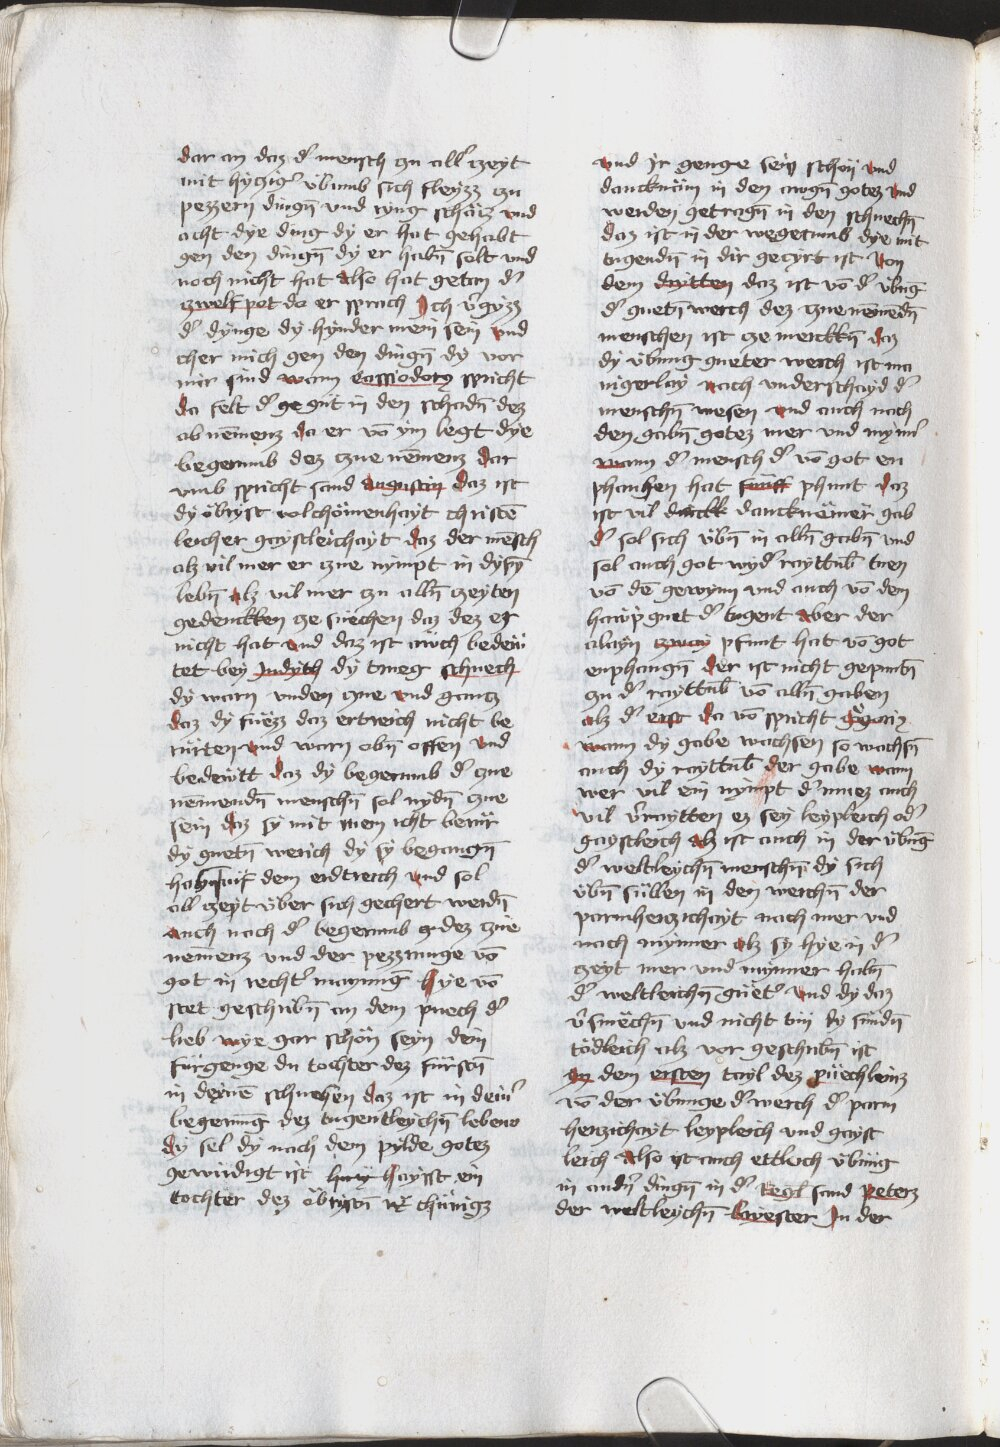 dar an daz d' mensch zu all' czeyt
mit hyczig' übunb sich fleyzz czu
pezzern dingn̄ vnd ryng schäcz vnd
acht dye ding dy er hat gehabt
gen den dingn̄ dy er habn̄ solt vnd
noch nicht hat Also hat getan d'
czwelf pot do er sprach Ich v'gizz
d' dynge dy hynder mein sein vnd
cher mich gen den dingn̄ dy vor
mir sind wann cassiodorg spricht
da selt d' ge gut in den schadn̄ dez
ab nēmenz da er vō ym legt dye
begerunb dez czue nēmenz Dar
vmb spricht sand Augustin Daz ist
dy öbryst volchömenhayt christē
leicher gaystleichayt Daz der mēsch
alz vil mer er czue nympt in dysn̄
lebn̄ Alz vil mer czu alln̄ czeyten
gedenckken ze suechen daz dez er
nicht hat vnd daz ist auch bedew
tet bey Judyth dy tmeg schuech
dy warn vnden czue vnd gancz
Daz dy füezz daz ertreich nicht be
rürten vnd warn obn̄ offen vnd
bedewtt Daz dy begerunb d' czue
nēmendn̄ menschn̄ sol nydn̄ czue
sein Daz sy mit niem icht berür
dy guetn̄ werich dy sy begangn̄
habn̄ auf dem erdtreich vnd sol
all czeyt über sich gechert werdn̄
Auch nach d' begerunb dez czue
nemenz vnd der pezzrunge vō
got in recht' maynuḡ Hye vō
stet geschribn̄ an dem puech d'
lieb wye gar schön seyn dein
fürgenge du tochter dez fürstn̄
in deinē schuehen Daz ist in dein'
begerung dez tugentleychn̄ lebens
Dy sel dy nach dem pylde gotez
gewirdigt ist hayzt ein
tochter dez öbrystn̄ chünigz
vnd Jr genge sein schön vnd
danckn̈äm in den awgn̄ gotez vnd
werden getragn̄ in den schuechn̄
daz ist in der begerunb dye mit
tugendn̄ in dir geczyrt ist Von
dem drytten daz ist vō d' übug
d' guetn̄ werch dez czue nēmedn̄
menschen ist ze merckkn̄ Daz
dy übung gueter werch ist ma
nigerlay nach vnderschayd d'
menschn̄ wesen vnd auch nach
den gabn̄ gotez mer vnd mynn'
wann d' mensch d' vō got en
phanhen hat fünff phunt Daz
ist vil danckk danckn̈ämer gab
d' sol sich übn̄ in alln̄ gabn̄ vnd
sol auch got wyd' rayttub̄ tuen
vō dē gewynn vnd auch vō dem
hawp guet d' tugent Aber der
alayn czway pfunt hat vō got
enphangn̄ der ist nicht gepuntn̄
zu d' rayttub̄ vō alln̄ gaben
Alz d' erst da vō spricht Gregorig
wann dy gabe wachsen so wachsn̄
auch dy rayttub̄ der gabe wann
wer vil ein nympt d' muez auch
vil v'raytten ez sey leypleich od'
gaystleich Alz ist auch in der übuḡ
d' weltleychn̄ menschn̄ dy sich
übn̄ süllen in den werchn̄ der
parmherczichayt nach mer vnd
nach mynner Alz sy hye in d'
czeyt mer vnd mynner habn̄
d' weltleichn̄ güet' vnd dy daz
v'smëchn̄ vnd nicht tün dy sündn̄
tödleich alz vor geschribn̄ ist
An dem ersten tayl dez püechleinz
vō der übunge d' werch d' parm
herczichayt leypleich vnd gayst
leich Also ist auch ettleich übung
in andn̄ dingn̄ in d' regl sand Peterz
der weltleychn̄ briester In der